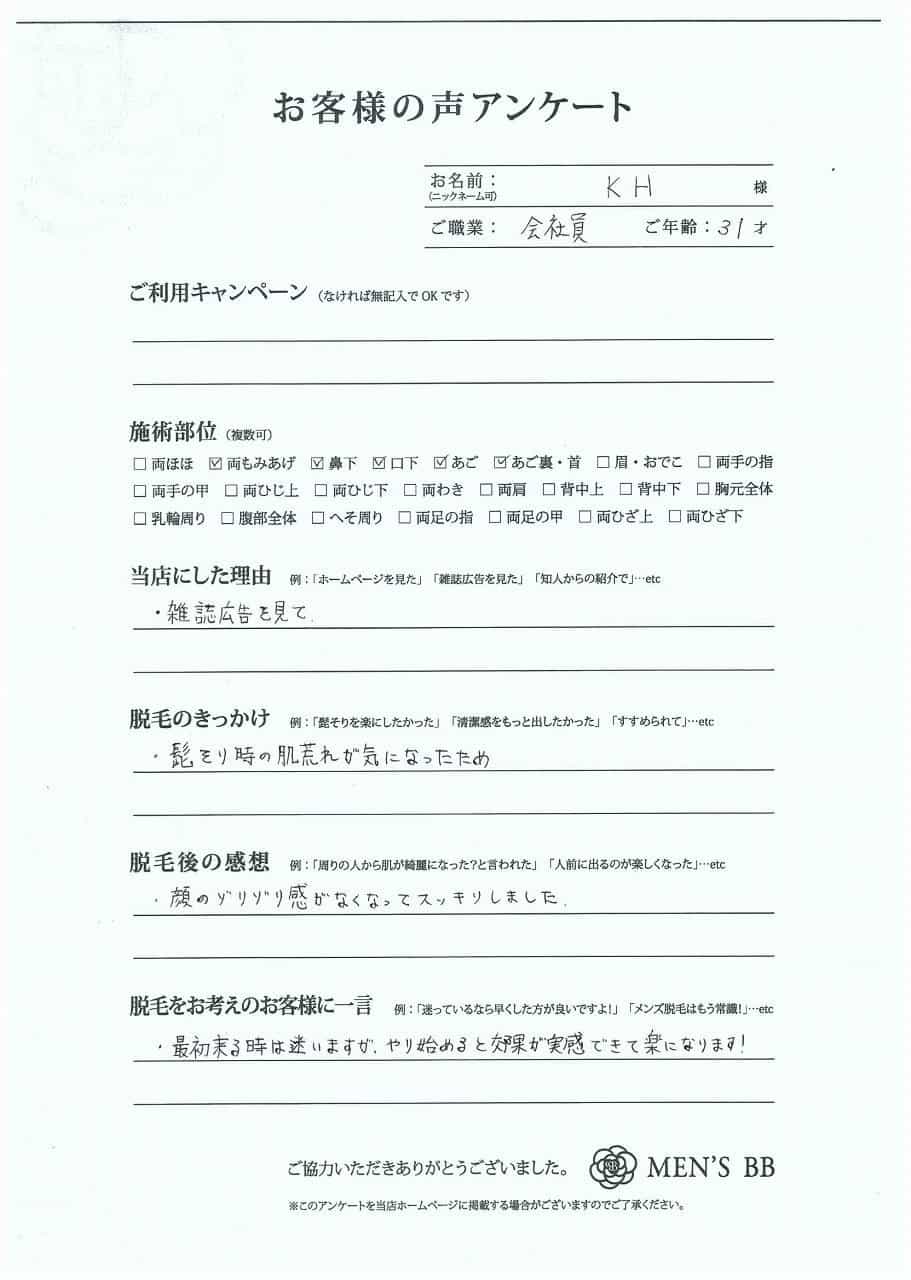 お客様の声アンケート
お名前： K H 様
(ニックネーム可)
ご職業： 会社員 ご年齢：31才
ご利用キャンペーン（なければ無記入でOKです）
施術部位（複数可）
□ 両ほほ ☑ 両もみあげ ☑ 鼻下 ☑ 口下 ☑ あご ☑ あご裏・首 □ 眉・おでこ □ 両手の指
□ 両手の甲 □ 両ひじ上 □ 両ひじ下 □ 両わき □ 両肩 □ 背中上 □ 背中下 □ 胸元全体
□ 乳輪周り □ 腹部全体 □ へそ周り □ 両足の指 □ 両足の甲 □ 両ひざ上 □ 両ひざ下
当店にした理由 例：「ホームページを見た」「雑誌広告を見た」「知人からの紹介で」…etc
・雑誌広告を見て.
脱毛のきっかけ 例：「髭そりを楽にしたかった」「清潔感をもっと出したかった」「すすめられて」…etc
・髭そり時の肌荒れが気になったため
脱毛後の感想 例：「周りの人から肌が綺麗になった?と言われた」「人前に出るのが楽しくなった」…etc
・顔のゾリゾリ感がなくなってスッキリしました.
脱毛をお考えのお客様に一言 例：「迷っているなら早くした方が良いですよ!」「メンズ脱毛はもう常識!」…etc
・最初来る時は迷いますが、やり始めると効果が実感できて楽になります!
ご協力いただきありがとうございました。 MEN'S BB
※このアンケートを当店ホームページに掲載する場合がございますのでご了承ください。